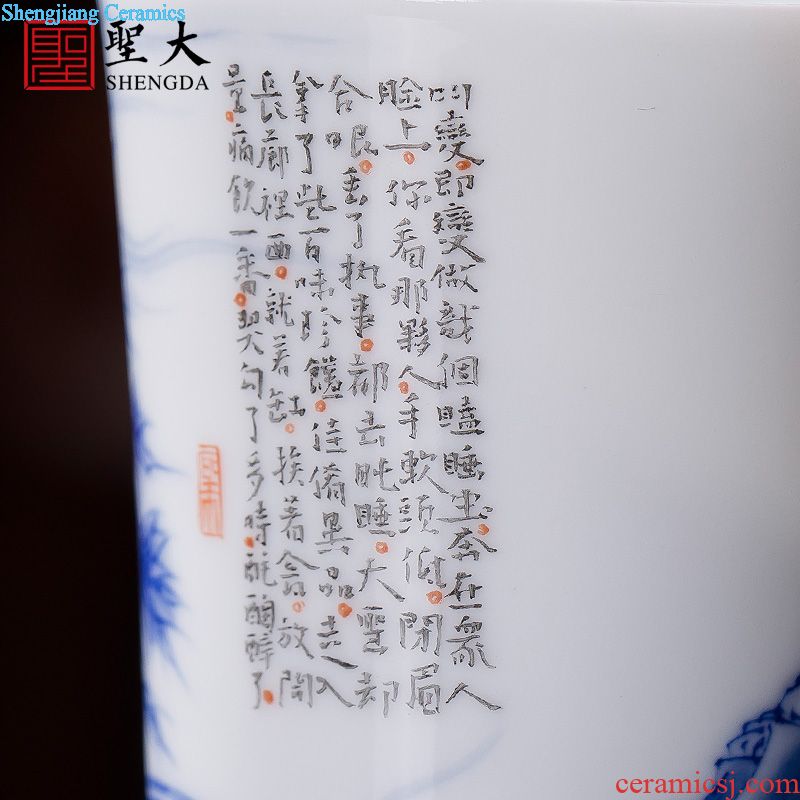 Shengjiang Ceramics
聖大
SHENGDA
叫變。即變做幾個瞌睡虫。奔在眾人
臉上。你看那夥人。手軟頭低。閉眉
合眼。丟了執事。都去盹睡。大聖却
拿了些百味珍饈。佳餚異品。走入
長廊裡面。就着缸。挨着瓮。放開
量。痛飲一番。吃勾了多時。酕醄醉了。
ceramicsj.com